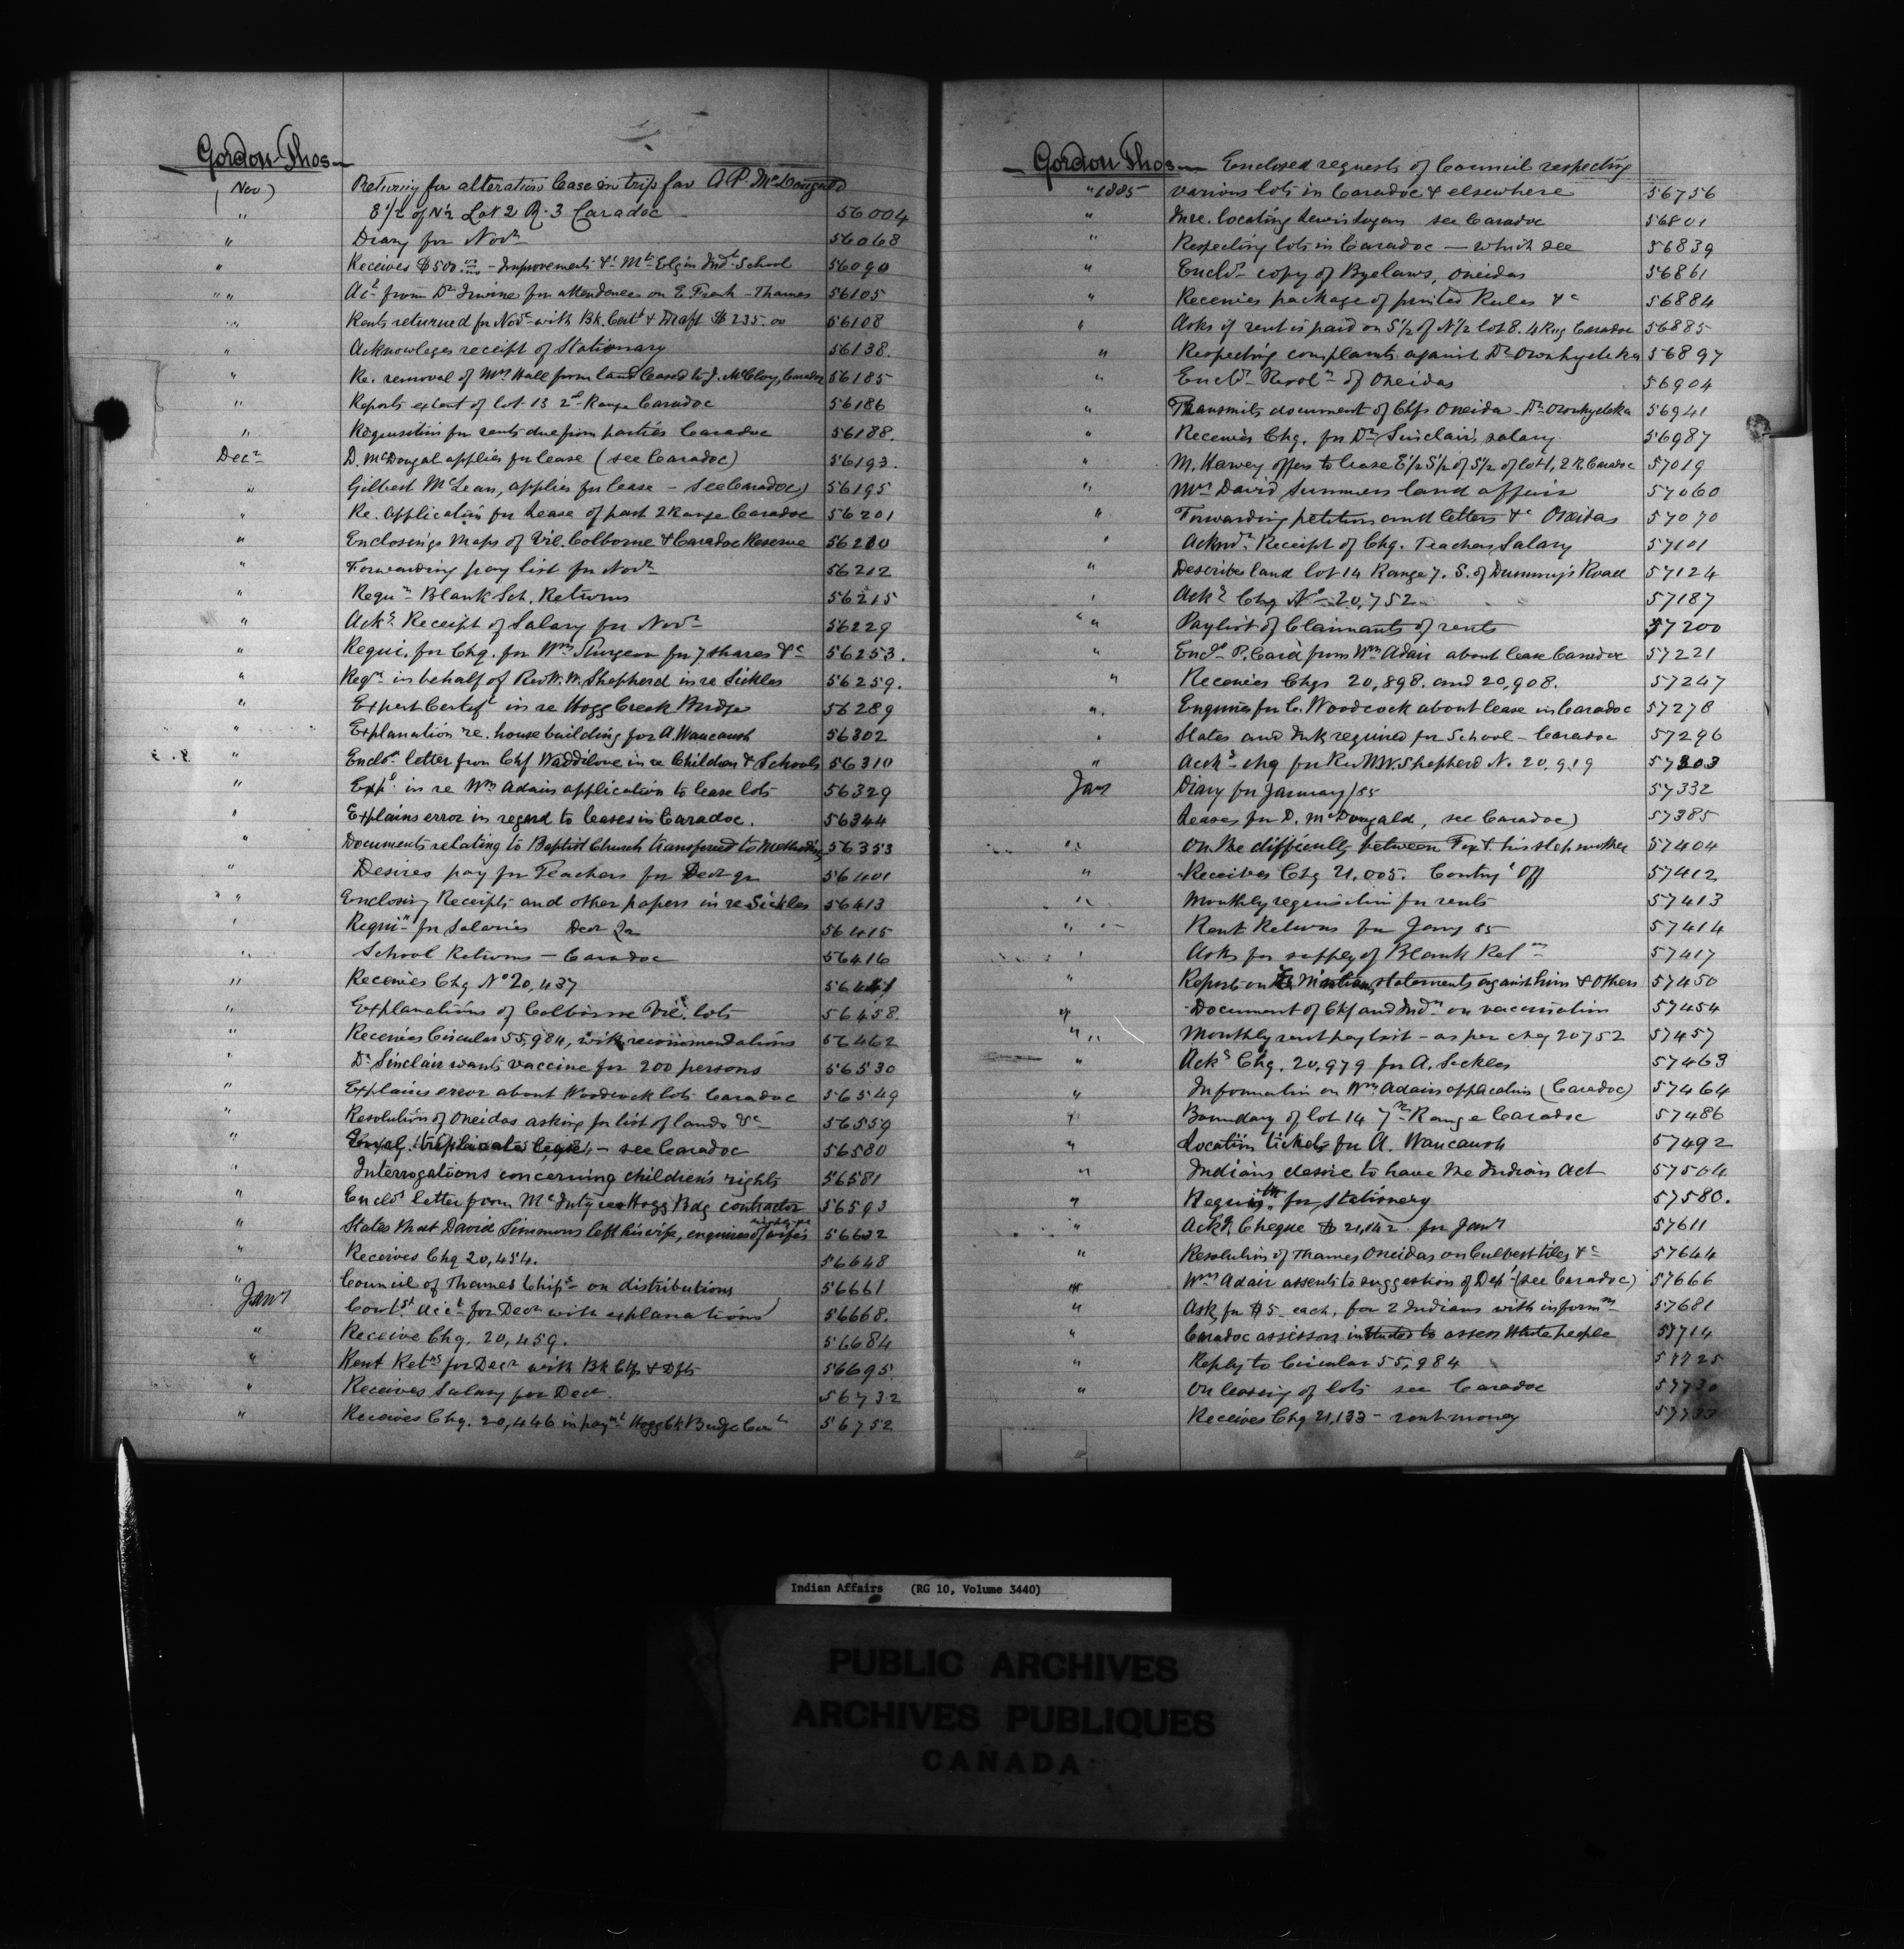 Gordon Thos
(Nov) Returning for alteration lease in trip fav A. P. McDougald
" E 1/2 of N 1/2 Lot 2 R. 3 Caradoc 56004
" Diary for Novr 56068
" Receives $500.00 - Improvements &c Mt Elgin Indl School 56090
" " Act from Dr Irvine for attendance on E. Frank - Thames 56105
" Rents returned for Novr with Bk. Cert & Draft $235.00 56108
" Acknowleges receipt of Stationary 56138.
" Re. removal of Mrs Hall from land leased to J. McCloy, Caradoc 56185
" Reports extent of lot 13 2d Range Caradoc 56186
" Requisition for rents due from parties Caradoc 56188.
Decr D. McDougal applies for lease (see Caradoc) 56193.
" Gilbert McLean, applies for lease - see Caradoc) 56195
" Re. Application for Lease of part 2 Range Caradoc 56201
" Enclosings Maps of Vil. Colborne & Caradoc Reserve 56210
" Forwarding pay list for Novr 56212
" Requn Blank Sch. Returns 56215
" Ackg Receipt of Salary for Novr 56229
" Requi. for Chq. for Wm Sturgeon for 7 shares &c 56253.
" Reqn in behalf of Rev W. W. Shepherd in re Sickles 56259.
" Expert Certif in re Hogg Creek Bridge 56289
" Explanation re. house building for A. Waucaush 56302
" Enclos letter from Chf Waddilove in re Children & Schools 56310
" Expl in re Wm Adair application to lease lots 56329
" Explains error in regard to leases in Caradoc. 56344
" Documents relating to Baptist Church transferred to Methodists 56353
" Desires pay for Teachers for Decr qr 56401
" " Enclosing Receipts and other papers in re Sickles 56413
" Requin for Salaries Decr Qr 56415
" School Returns - Caradoc 56416
" Receives Chq No 20,437 56441
" Explanations of Colborne Vil. lots 56458.
" Receives Circular 55,984, with recommendations 56462
" Dr Sinclair wants vaccine for 200 persons 56530
" Explains error about Woodcock lots Caradoc 56549
" Resolution of Oneidas asking for list of lands &c 56559
" triplicate lease - see Caradoc 56580
" Interrogations concerning children's rights 56581
" Encls letter from McIntyre Hogg Bdg contractor 56593
" States that David Simmons left his wife, enquires of wife's 56632
" Receives Chq 20,454. 56648
" Council of Thames Chips on distributions 56661
Janr Cont. Acct for Decr with explanations 56668.
" Receive Chq. 20,459. 56684
" Rent Retns for Decr with Bk Ctfs & Dfts 56695
" Receives Salary for Decr. 56732
" Receives Chq. 20,446 in paymt Hogg Ck Bridge Cont 56752
Gordon Thos Enclosed requests of Council respecting
" 1885 various lots in Caradoc & elsewhere 56756
" In re. locating Lewis Logan see Caradoc 56801
" Respecting lots in Caradoc - which see 56839
" Encls copy of Byelaws, Oneidas 56861
" Receives package of printed Rules &c 56884
" Asks if rent is paid on S 1/2 of N 1/2 lot 8. 4 Rng Caradoc 56885
" Respecting complaints against Dr Oronhyateka 56897
" Encls Resoln of Oneidas 56904
" Transmits document of Chfs Oneida - Dr Oronhyateka 56941
" Receives Chq. for Dr Sinclair's salary 56987
" M. Harvey offers to lease E 1/2 S 1/2 of S 1/2 of lot 1, 2 R. Caradoc 57019
" Mrs David Summers land affair 57060
" Forwarding petition and letters &c Oneidas 57070
" Acknd Receipt of Chq. Teachers Salary 57101
" Describes land lot 14 Range 7. S. of Dummys Road 57124
" Ackg Chq No 20,752 57187
" " Paylist of Claimants of rents 57200
" Encls P. Card from Wm Adair about lease Caradoc 57221
" Receives Chqs 20,898. and 20,908. 57247
" Enquires for C. Woodcock about lease in Caradoc 57278
" Slates and Ink required for School - Caradoc 57296
" Ackg chq for Rev W.W. Shepherd N. 20,919 57303
Janr Diary for January/85 57332
Leases for D. McDougald, see Caradoc) 57385
" On the difficulty between Fox & his step mother 57404
" Receives Chq 21,005. Conting Off 57412
" Monthly requisition for rents 57413
" Rent Returns for Jany 85 57414
" Asks for supply of Blank Retns 57417
" Reports on statements against him & others 57450
" Document of Chf and Indns on vaccination 57454
" " Monthly rent pay list - as per chq 20752 57457
" Ackg Chq. 20,979 for A. Sickles 57463
" Information on Wm Adairs application (Caradoc) 57464
" Boundary of lot 14 7th Range Caradoc 57486
" Location tickets for A. Waucaush 57492
" Indians desire to have the Indian Act 57504
" Requisitn for stationery 57580.
" Ackg. Cheque $ 21,142 for Janr 57611
" Resolution of Thames Oneidas on Culvert tiles &c 57644
" Wm Adair assents to suggestion of Dept (see Caradoc) 57666
" Ask for $5 each, for 2 Indians with informn 57681
" Caradoc assessors instructed to assess white people 57714
" Reply to Circular 55,984 57725
" On leasing of lots see Caradoc 57730
Receives Chq 21,133 - rent money 57733
Indian Affairs (RG 10, Volume 3440)
PUBLIC ARCHIVES
ARCHIVES PUBLIQUES
CANADA